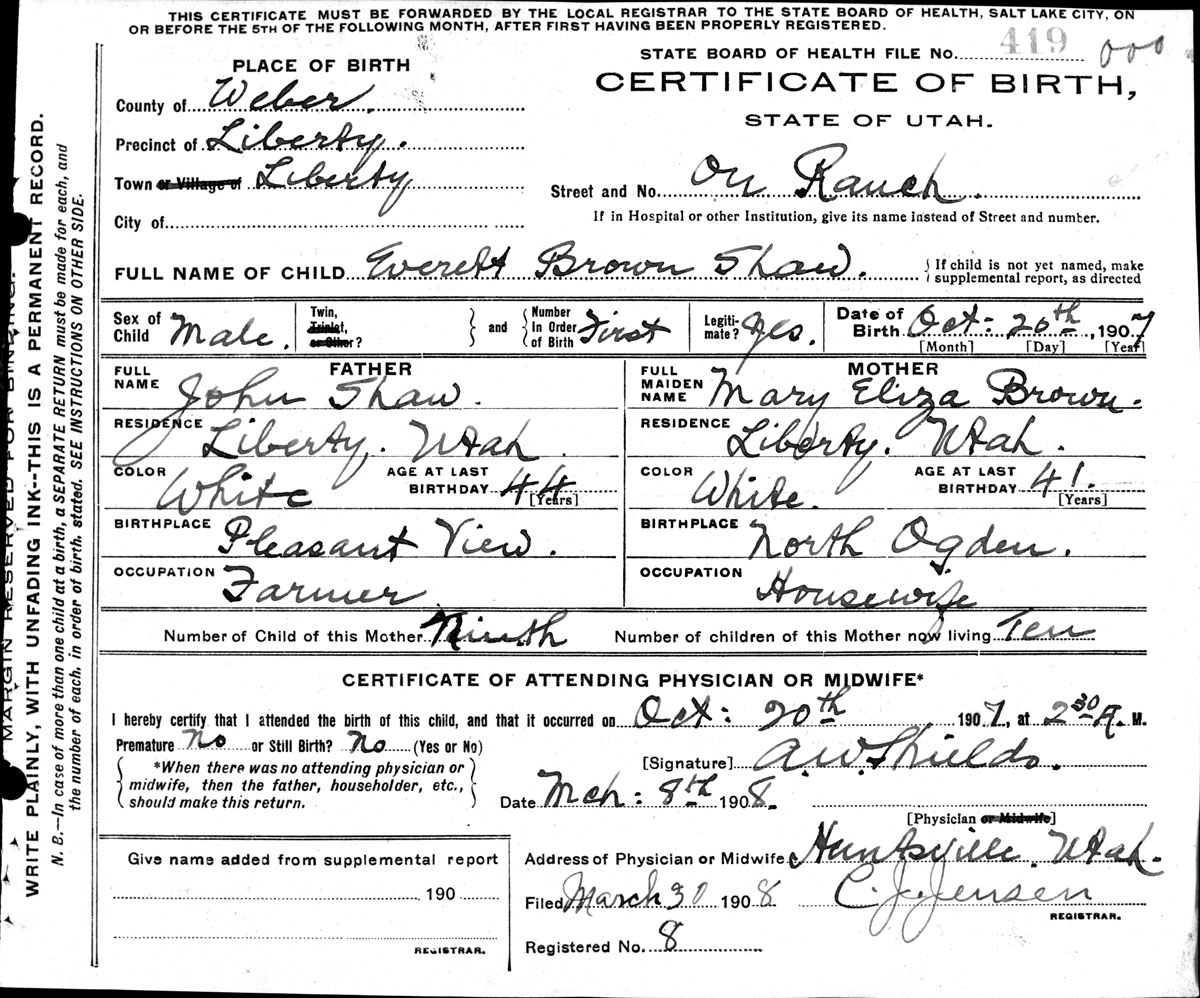 THIS CERTIFICATE MUST BE FORWARDED BY THE LOCAL REGISTRAR TO THE STATE BOARD OF HEALTH, SALT LAKE CITY, ON
OR BEFORE THE 5TH OF THE FOLLOWING MONTH, AFTER FIRST HAVING BEEN PROPERLY REGISTERED.
STATE BOARD OF HEALTH FILE No. 419 000
PLACE OF BIRTH
CERTIFICATE OF BIRTH,
STATE OF UTAH.
County of Weber.
Precinct of Liberty.
Town or Village of Liberty
Street and No. On Ranch.
City of
If in Hospital or other Institution, give its name instead of Street and number.
FULL NAME OF CHILD Everett Brown Shaw. { If child is not yet named, make
supplemental report, as directed
Sex of Child Male. Twin, Triplet, or Other? } and { Number In Order of Birth First Legiti-mate? Yes. Date of Birth Oct: 20th, 1907
[Month] [Day] [Year]
FATHER
MOTHER
FULL NAME John Shaw.
FULL MAIDEN NAME Mary Eliza Brown.
RESIDENCE Liberty. Utah.
RESIDENCE Liberty. Utah.
COLOR White AGE AT LAST BIRTHDAY 44 [Years]
COLOR White. AGE AT LAST BIRTHDAY 41. [Years]
BIRTHPLACE Pleasant View.
BIRTHPLACE North Ogden.
OCCUPATION Farmer
OCCUPATION Housewife
Number of Child of this Mother Ninth Number of children of this Mother now living Ten
CERTIFICATE OF ATTENDING PHYSICIAN OR MIDWIFE*
I hereby certify that I attended the birth of this child, and that it occurred on Oct: 20th 1907, at 2 30 A. M.
Premature No or Still Birth? No (Yes or No)
[Signature] A.W. Shields.
{ *When there was no attending physician or
midwife, then the father, householder, etc.,
should make this return. }
Date Mch: 8th 1908.
[Physician or Midwife]
Give name added from supplemental report
190
REGISTRAR.
Address of Physician or Midwife Huntsville. Utah.
Filed March 30 1908 C. J. Jensen
REGISTRAR.
Registered No. 8
MARGIN RESERVED FOR BINDING.
WRITE PLAINLY, WITH UNFADING INK--THIS IS A PERMANENT RECORD.
N. B.—In case of more than one child at a birth, a SEPARATE RETURN must be made for each, and
the number of each, in order of birth, stated. SEE INSTRUCTIONS ON OTHER SIDE.